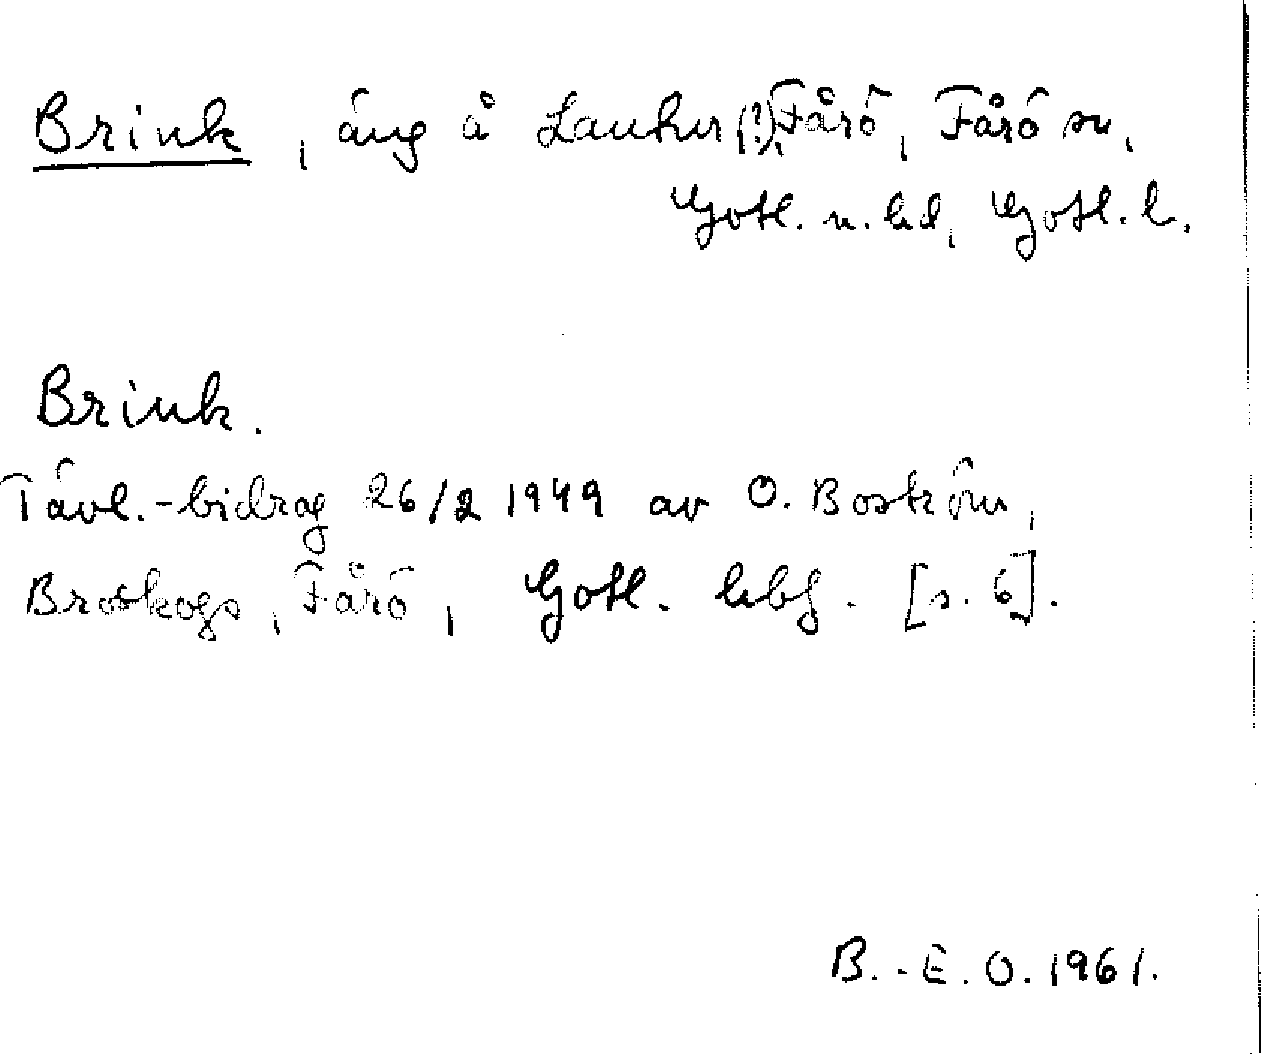 Brink, äng å Lauter (?), Fårö, Fårö sn,
Gotl. n. hd, Gotl. l.
Brink.
Tävl.-bidrag 26/2 1949 av O. Boström,
Broskogs, Fårö, Gotl. hbf. [s. 6].
B.-E. O. 1961.